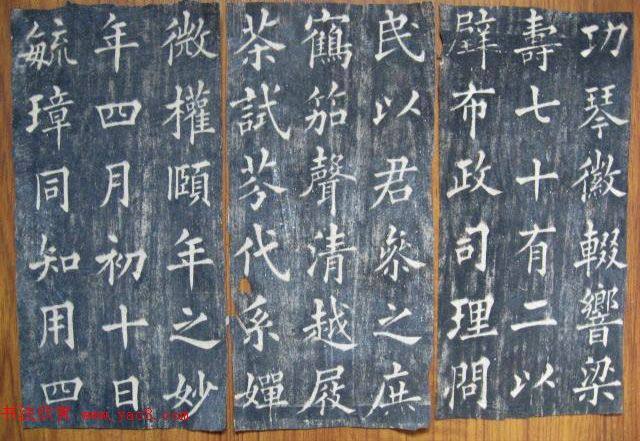 功琴徽輟響梁
壽七十有二以
辟布政司理問
民以君叅之庶
鶴笳聲清越屐
茶試芬代系嬋
微權頤年之妙
年四月初十日
毓璋同知用四
书法欣赏 www.yac8.com